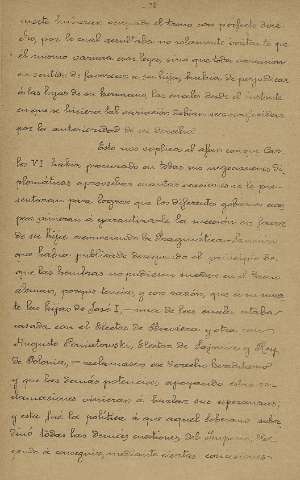 cuarto hubiesen ocupado el trono con perfecto dere-
cho, por lo cual resultaba no solamente injusto que
él mismo variara esas leyes, sino que toda variacion
en sentido de favorecer a su hija, hubiera de perjudicar
á las hijas de su hermano, las cuales desde el instante
en que se hiciera tal variación debian ser
por la autenticidad de su derecho.
Esto nos explica el afan con que Car-
los VI habia procurado en todas sus negociaciones di-
plomáticas aprovechar cuantas ocasiones se le pre-
sentaran para lograr que los diferentes gobiernos euro-
peos vinieran á garantizarle la sucesion en favor
de su hija, sancionando la Pragmática-Sancion
que habia publicado
que las hembras no pudieran suceder en el Tro-
no
te las hijas de José I, — una de las cuales estaba
casada con el Elector de Baviera y otra con
Augusto Poniatowski, Elector de Sajonia y Rey
de Polonia, — reclamasen ese derecho hereditario
y que las demás potencias, apoyando estas re-
clamaciones vinieran á burlar sus esperanzas,
y esta fué la política á que aquel soberano subor-
dinó todas las demás cuestiones del Imperio,
cuando á conseguir, mediante ciertas concesiones